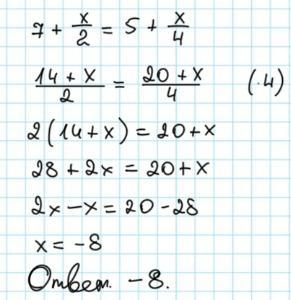 7 + x/2 = 5 + x/4
(14 + x)/2 = (20 + x)/4 (·4)
2(14+x) = 20+x
28 + 2x = 20+x
2x - x = 20 - 28
x = -8
Ответ. -8.